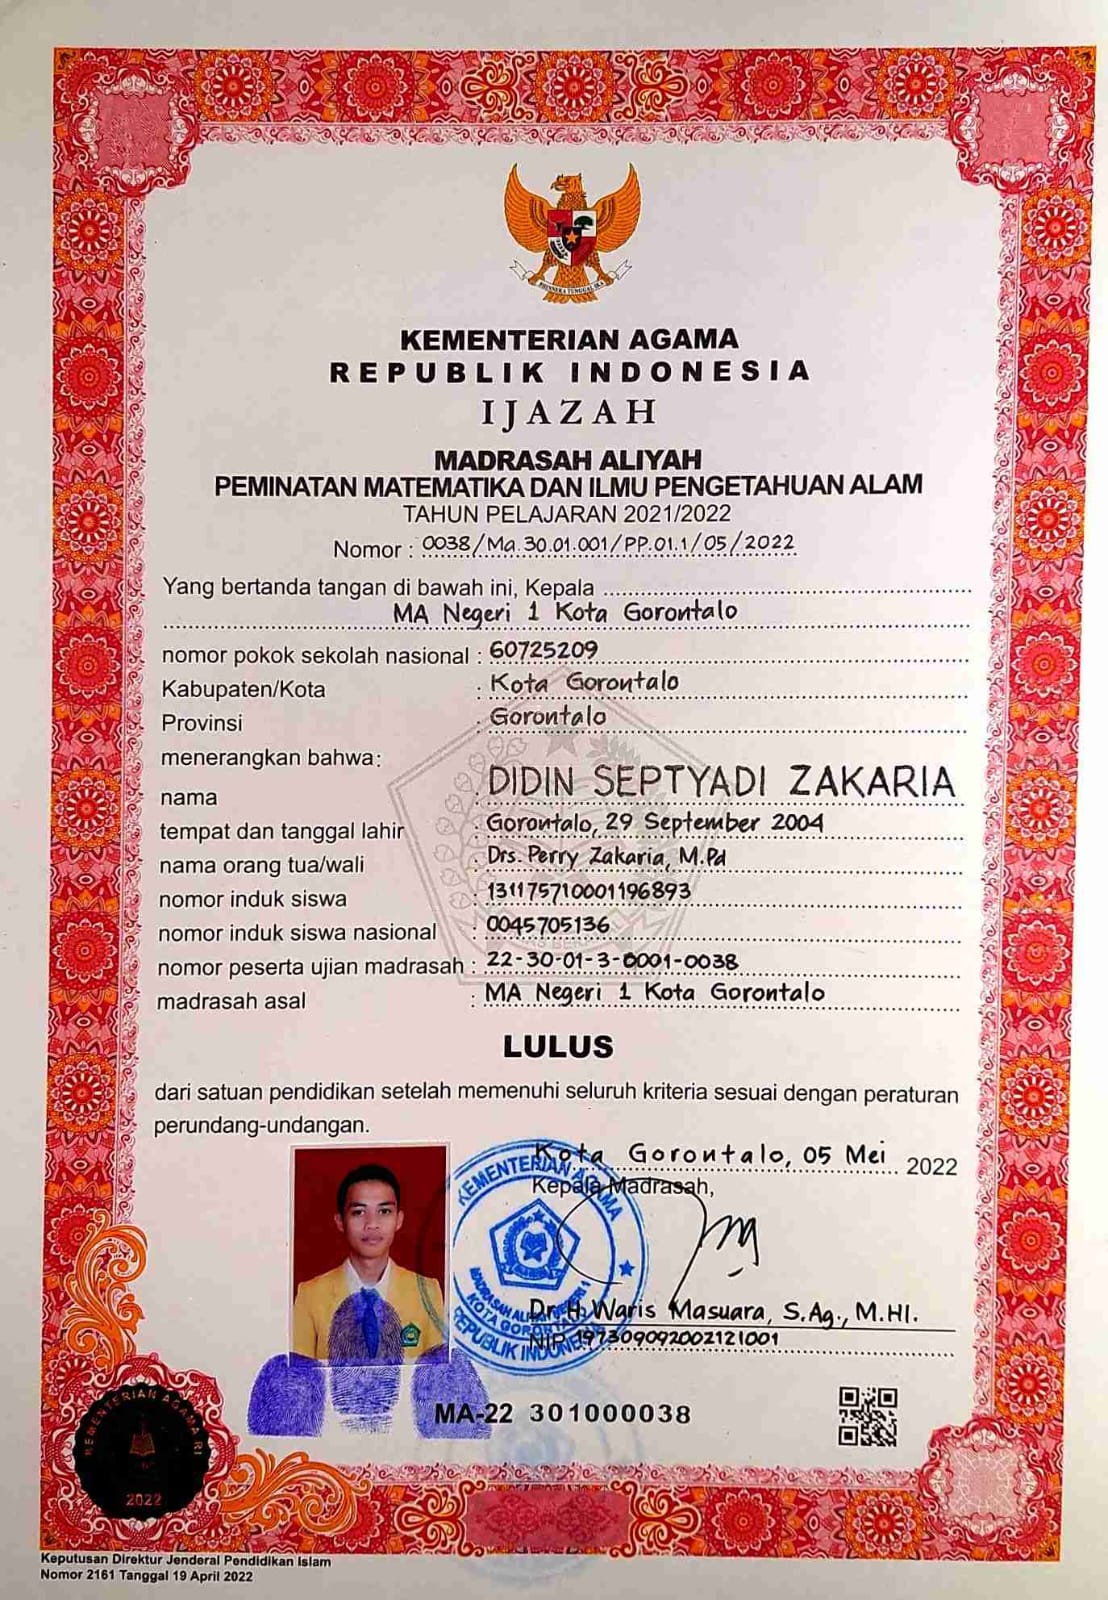 KEMENTERIAN AGAMA
REPUBLIK INDONESIA
IJAZAH
MADRASAH ALIYAH
PEMINATAN MATEMATIKA DAN ILMU PENGETAHUAN ALAM
TAHUN PELAJARAN 2021/2022
Nomor : 0038/Ma.30.01.001/PP.01.1/05/2022
Yang bertanda tangan di bawah ini, Kepala
MA Negeri 1 Kota Gorontalo
nomor pokok sekolah nasional : 60725209
Kabupaten/Kota : Kota Gorontalo
Provinsi : Gorontalo
menerangkan bahwa:
nama : DIDIN SEPTYADI ZAKARIA
tempat dan tanggal lahir : Gorontalo, 29 September 2004
nama orang tua/wali : Drs. Perry Zakaria, M.Pd
nomor induk siswa : 131175710001196893
nomor induk siswa nasional : 0045705136
nomor peserta ujian madrasah : 22-30-01-3-0001-0038
madrasah asal : MA Negeri 1 Kota Gorontalo
LULUS
dari satuan pendidikan setelah memenuhi seluruh kriteria sesuai dengan peraturan
perundang-undangan.
Kota Gorontalo, 05 Mei 2022
Kepala Madrasah,
KEMENTERIAN AGAMA
MADRASAH ALIYAH NEGERI 1
KOTA GORONTALO
REPUBLIK INDONESIA
Dr. H. Waris Masuara, S.Ag., M.HI.
NIP. 197309092002121001
MA-22 301000038
KEMENTERIAN AGAMA RI
2022
Keputusan Direktur Jenderal Pendidikan Islam
Nomor 2161 Tanggal 19 April 2022